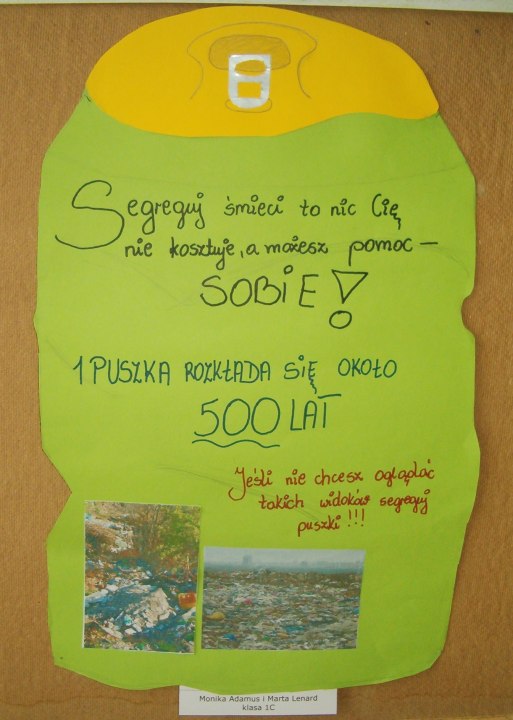 Segreguj śmieci to nic Cię
nie kosztuje, a możesz pomoc –
SOBIE!
1 PUSZKA ROZKŁADA SIĘ OKOŁO
500 LAT
Jeśli nie chcesz oglądać
takich widoków segreguj
puszki!!!
Monika Adamus i Marta Lenard
klasa 1C